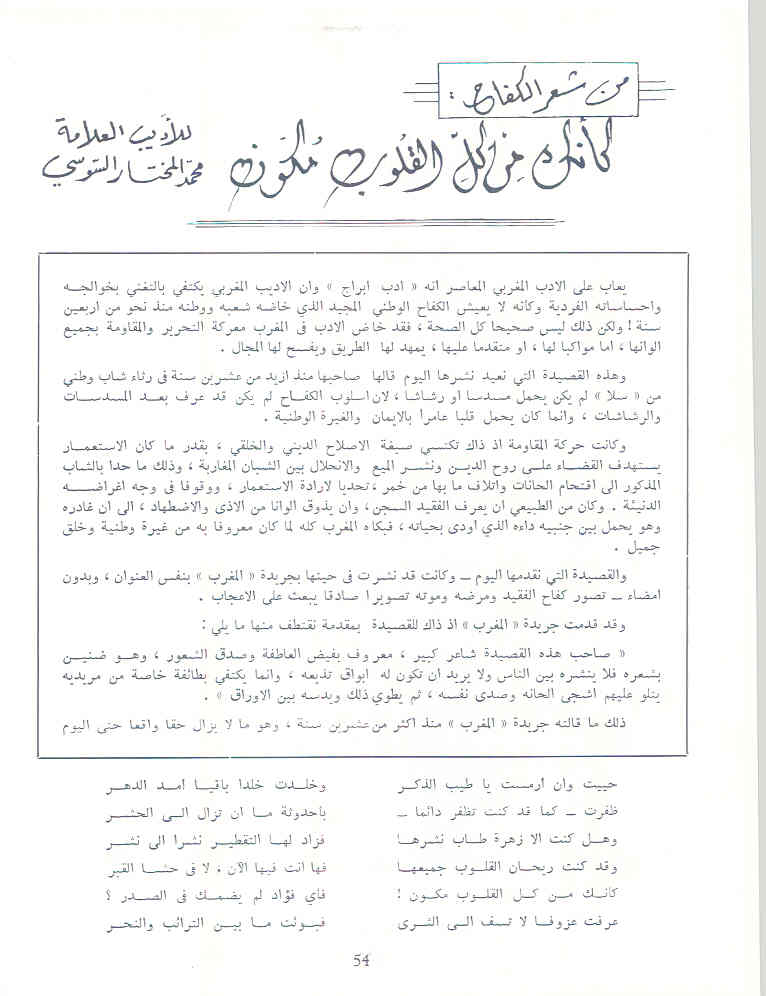 من شعر الكفاح :
كأنك من كل القلوب مكون
للأديب العلامة
محمد المختار السوسي
يعاب على الادب المغربي المعاصر انه « ادب ابراج » وان الاديب المغربي يكتفي بالتغني بخوالجه
واحساساته الفردية وكأنه لا يعيش الكفاح الوطني المجيد الذي خاضه شعبه ووطنه منذ نحو من اربعين
سنة ! ولكن ذلك ليس صحيحا كل الصحة ، فقد خاض الادب فى المغرب معركة التحرير والمقاومة بجميع
الوانها ، اما مواكبا لها ، او متقدما عليها ، يمهد لها الطريق ويفسح لها المجال .
وهذه القصيدة التي نعيد نشرها اليوم قالها صاحبها منذ ازيد من عشرين سنة فى رثاء شاب وطني
من « سلا » لم يكن يحمل مسدسا او رشاشا ، لان اسلوب الكفاح لم يكن قد عرف بعد المسدسات
والرشاشات ، وانما كان يحمل قلبا عامرا بالايمان والغيرة الوطنية .
وكانت حركة المقاومة اذ ذاك تكتسي صيغة الاصلاح الديني والخلقي ، بقدر ما كان الاستعمار
يستهدف القضاء على روح الدين ونشر الميع والانحلال بين الشبان المغاربة ، وذلك ما حدا بالشاب
المذكور الى اقتحام الحانات واتلاف ما بها من خمر ، تحديا لارادة الاستعمار ، ووقوفا فى وجه اغراضه
الدنيئة . وكان من الطبيعي ان يعرف الفقيد السجن ، وان يذوق الوانا من الاذى والاضطهاد ، الى ان غادره
وهو يحمل بين جنبيه داءه الذي اودى بحياته ، فبكاه المغرب كله لما كان معروفا به من غيرة وطنية وخلق
جميل .
والقصيدة التي نقدمها اليوم ــ وكانت قد نشرت فى حينها بجريدة « المغرب » بنفس العنوان ، وبدون
امضاء ــ تصور كفاح الفقيد ومرضه وموته تصويرا صادقا يبعث على الاعجاب .
وقد قدمت جريدة « المغرب » اذ ذاك للقصيدة بمقدمة نقتطف منها ما يلي :
« صاحب هذه القصيدة شاعر كبير ، معروف بفيض العاطفة وصدق الشعور ، وهو ضنين
بشعره فلا ينشره بين الناس ولا يريد ان تكون له ابواق تذيعه ، وانما يكتفي بطائفة خاصة من مريديه
يتلو عليهم اشجى الحانه وصدى نفسه ، ثم يطوي ذلك ويدسه بين الاوراق » .
ذلك ما قالته جريدة « المغرب » منذ اكثر من عشرين سنة ، وهو ما لا يزال حقا واقعا حتى اليوم
حييت وان ارمست يا طيب الذكر وخلدت خلدا باقيا امد الدهر
ظفرت ــ كما قد كنت تظفر دائما ــ باحدوثة ما ان تزال الى الحشر
وهل كنت الا زهرة طاب نشرها فزاد لها التقطير نشرا الى نشر
وقد كنت ريحان القلوب جميعها فها انت فيها الآن ، لا فى حشا القبر
كانك من كل القلوب مكون ! فاي فؤاد لم يضمك فى الصدر ؟
عرفت عزوفا لا تسف الى الثرى فبوئت ما بين الترائب والنحر
54